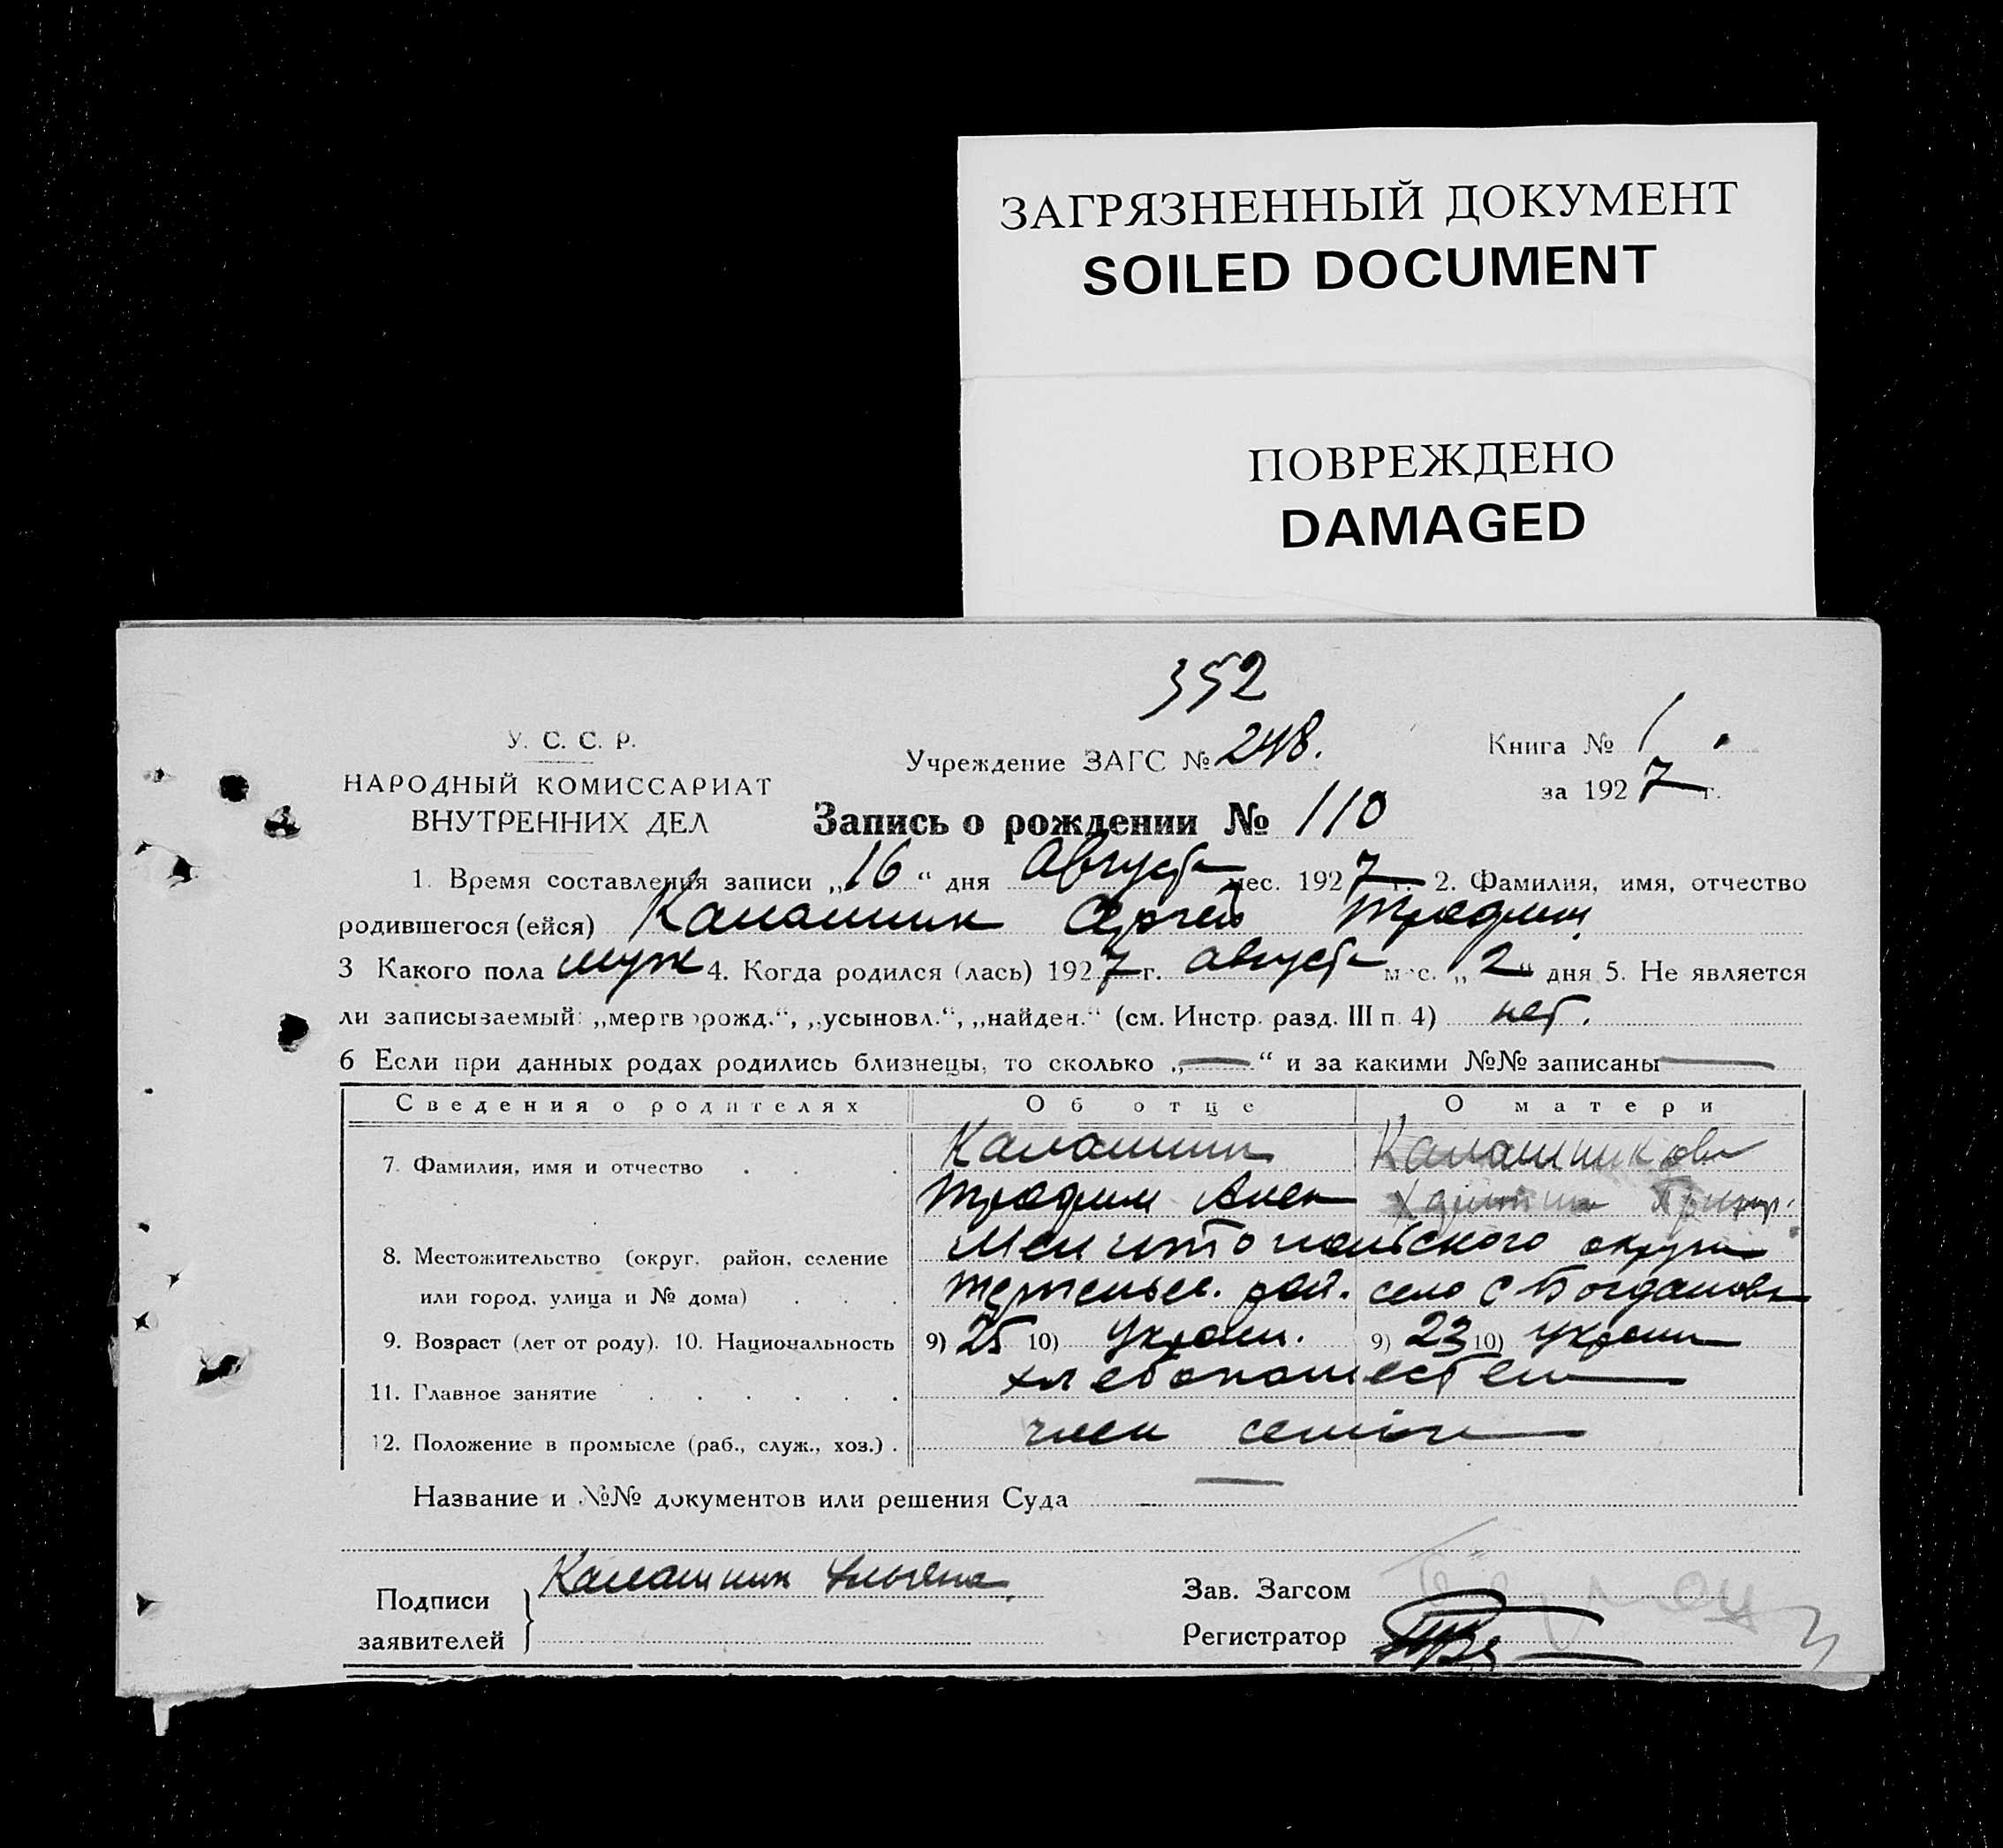 ЗАГРЯЗНЕННЫЙ ДОКУМЕНТ
SOILED DOCUMENT
ПОВРЕЖДЕНО
DAMAGED
352
У. С. С. Р.
НАРОДНЫЙ КОМИССАРИАТ
ВНУТРЕННИХ ДЕЛ
Учреждение ЗАГС № 248.
Книга № 1.
за 1927 г.
Запись о рождении № 110
1. Время составления записи „16“ дня Августа мес. 1927 г. 2. Фамилия, имя, отчество
родившегося (ейся) Калашник Сергей Трафим
3 Какого пола муж 4. Когда родился (лась) 1927 г. августа мес. „2“ дня 5. Не является
ли записываемый: „мертворожд.“, „усыновл.“, „найден.“ (см. Инстр. разд. III п. 4) нет.
6 Если при данных родах родились близнецы, то сколько „—“ и за какими №№ записаны —
Сведения о родителях Об отце О матери
7. Фамилия, имя и отчество Калашник Калашникова
Трафим Алек
8. Местожительство (округ, район, селение Мелитопольского округа
или город, улица и № дома) рай. село Богдановка
9. Возраст (лет от роду). 10. Национальность 9) 25 10) Украин. 9) 23 10) Украин
11. Главное занятие хлебопашеством
12. Положение в промысле (раб., служ., хоз.) член семии
Название и №№ документов или решения Суда —
Подписи заявителей Калашник
Зав. Загсом
Регистратор